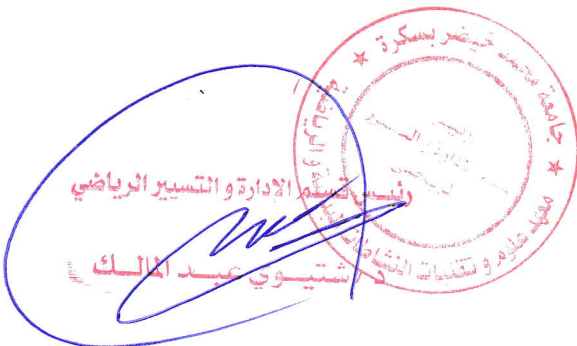 جامعة محمد خيضر بسكرة
معهد علوم و تقنيات النشاطات البدنية و الرياضية
رئيس قسم الإدارة و التسيير الرياضي
د. شتيوي عبد المالك